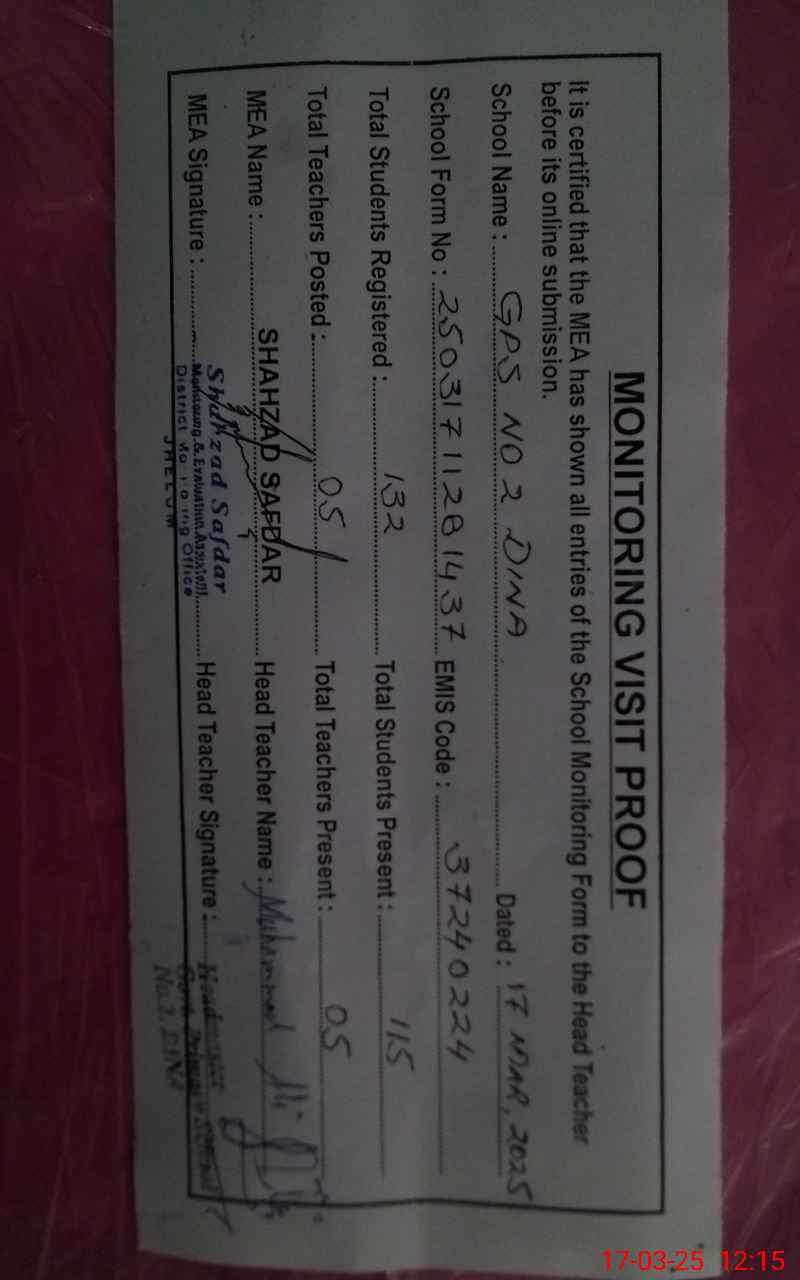 MONITORING VISIT PROOF
It is certified that the MEA has shown all entries of the School Monitoring Form to the Head Teacher
before its online submission.
School Name : GPS NO 2 DINA Dated : 17 MAR, 2025
School Form No : 25031711281437 EMIS Code : 37240224
Total Students Registered : 132 Total Students Present : 115
Total Teachers Posted : 05 Total Teachers Present : 05
MEA Name : SHAHZAD SAFDAR Head Teacher Name : Muhammad
MEA Signature : Head Teacher Signature :
Shahzad Safdar
Monitoring & Evaluation Assistant
District Monitoring Office
JHELUM
Headmaster
Govt Primary School
No.2. DINA
17-03-25 12:15